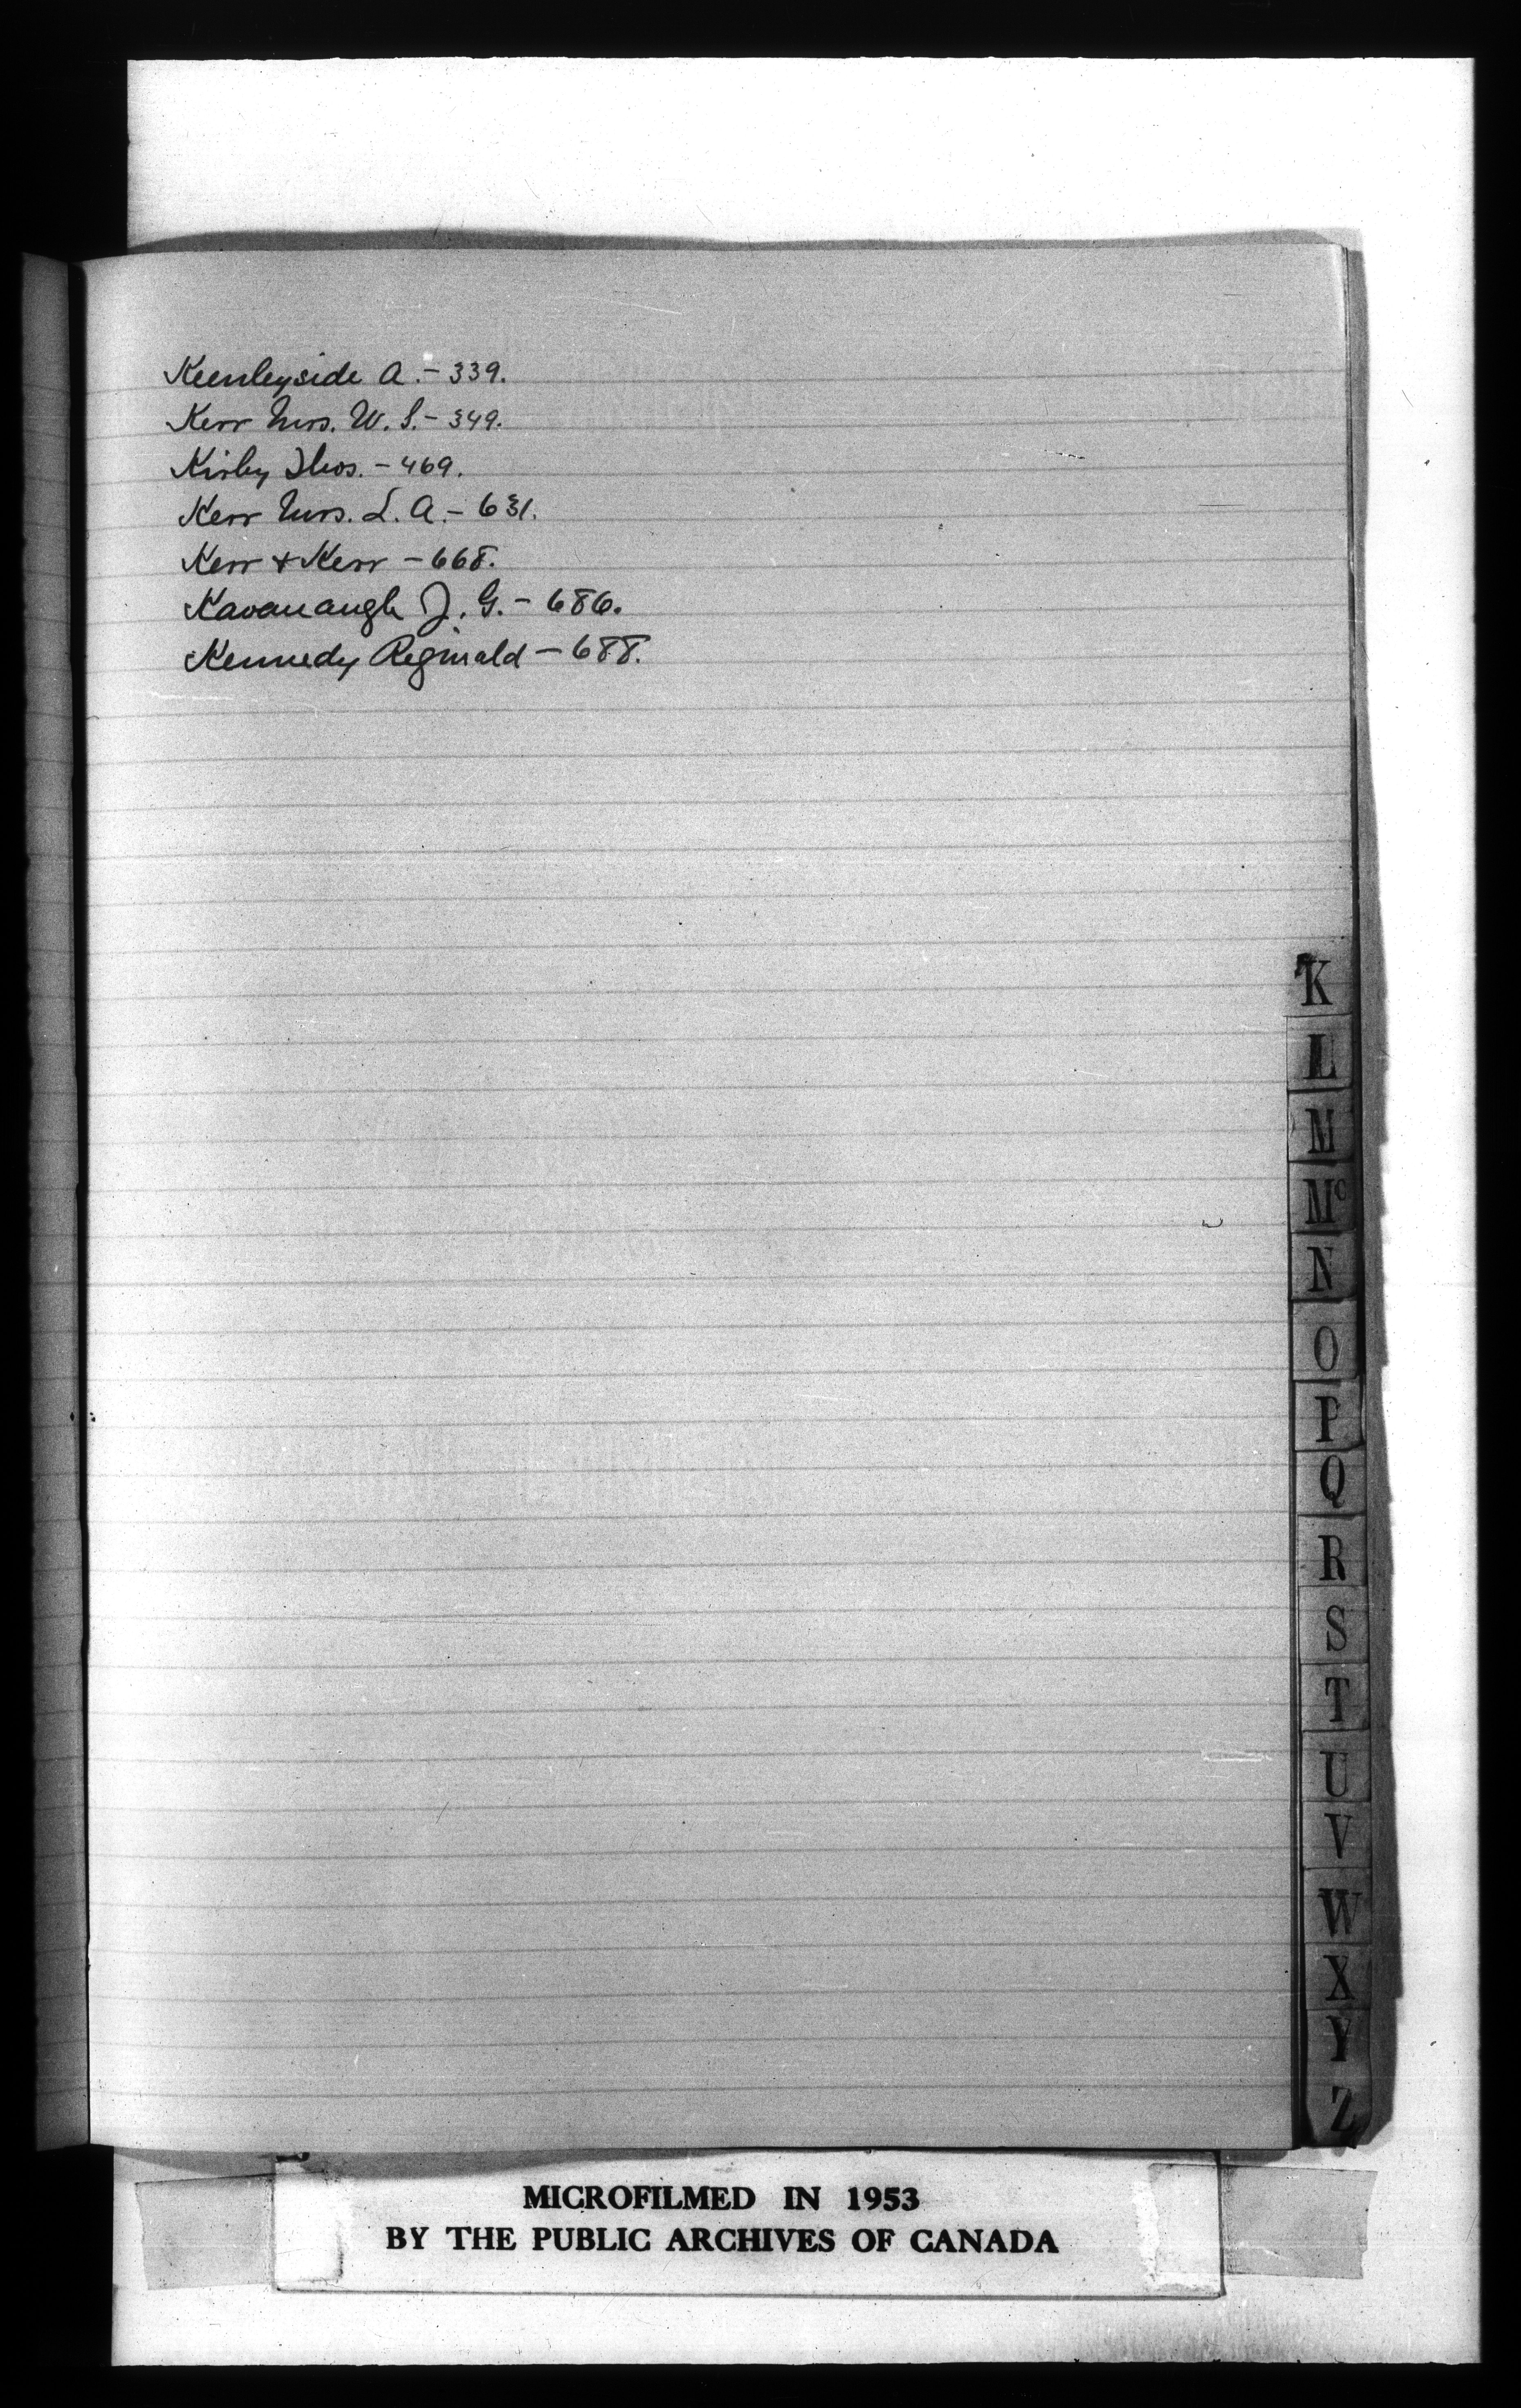 Keenleyside A. - 339.
Kerr Mrs. W. S. - 349.
Kirby Thos. - 469.
Kerr Mrs. L. A. - 631.
Kerr + Kerr - 668.
Kavanaugh J. G. - 686.
Kennedy Reginald - 688.
K
L
M
Mc
N
O
P
Q
R
S
T
U
V
W
X
Y
Z
MICROFILMED IN 1953
BY THE PUBLIC ARCHIVES OF CANADA